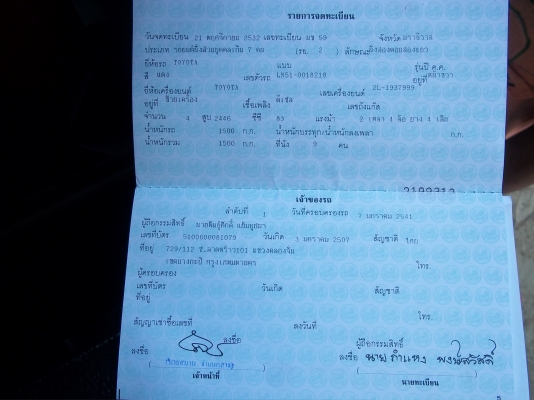 รายการจดทะเบียน
วันจดทะเบียน 21 พฤศจิกายน 2532 เลขทะเบียน 59 จังหวัด นราธิวาส
ประเภท รถยนต์นั่งส่วนบุคคลเกิน 7 คน (รย. 2) ลักษณะ
ยี่ห้อรถ TOYOTA แบบ รุ่นปี ค.ศ.
สี แดง เลขตัวรถ LN51-0018218 อยู่ที่
ยี่ห้อเครื่องยนต์ TOYOTA เลขเครื่องยนต์ 2L-1937999
อยู่ที่ เชื้อเพลิง ดีเซล เลขถังแก๊ส
จำนวน 4 สูบ 2446 ซีซี 83 แรงม้า 2 เพลา 4 ล้อ ยาง 4 เส้น
น้ำหนักรถ 1500 ก.ก. น้ำหนักบรรทุก/น้ำหนักลงเพลา ก.ก.
น้ำหนักรวม 1500 ก.ก. ที่นั่ง 9 คน
เจ้าของรถ
ลำดับที่ 1 วันที่ครอบครองรถ 7 มกราคม 2541
ผู้ถือกรรมสิทธิ์
เลขที่บัตร วันเกิด 3 มกราคม 2507 สัญชาติ ไทย
ที่อยู่ 729/112 ซ.ลาดพร้าว101 แขวงคลองจั่น
เขตบางกะปิ กรุงเทพมหานคร โทร.
ผู้ครอบครอง
เลขที่บัตร วันเกิด สัญชาติ
ที่อยู่ โทร.
สัญญาเช่าซื้อเลขที่ ลงวันที่
ลงชื่อ ผู้ถือกรรมสิทธิ์
ลงชื่อ ลงชื่อ นายกำแหง พงษ์สวัสดิ์
เจ้าหน้าที่ นายทะเบียน
5